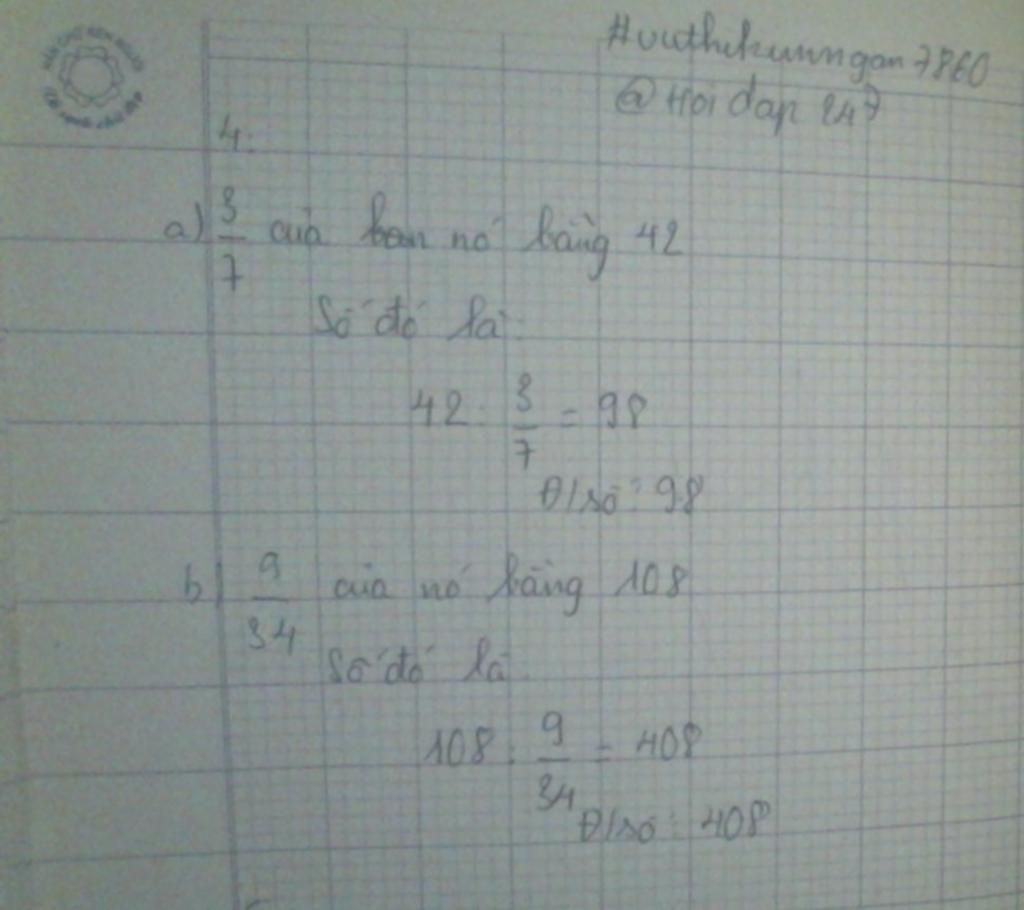 #vuthikimngan7860
@Hoi dap 247
4.
a) 3/7 của ban nó bằng 42
Số đó là:
42 : 3/7 = 98
Đ/số: 98
b) 9/34 của nó bằng 108
Số đó là:
108 : 9/34 = 408
Đ/số: 408